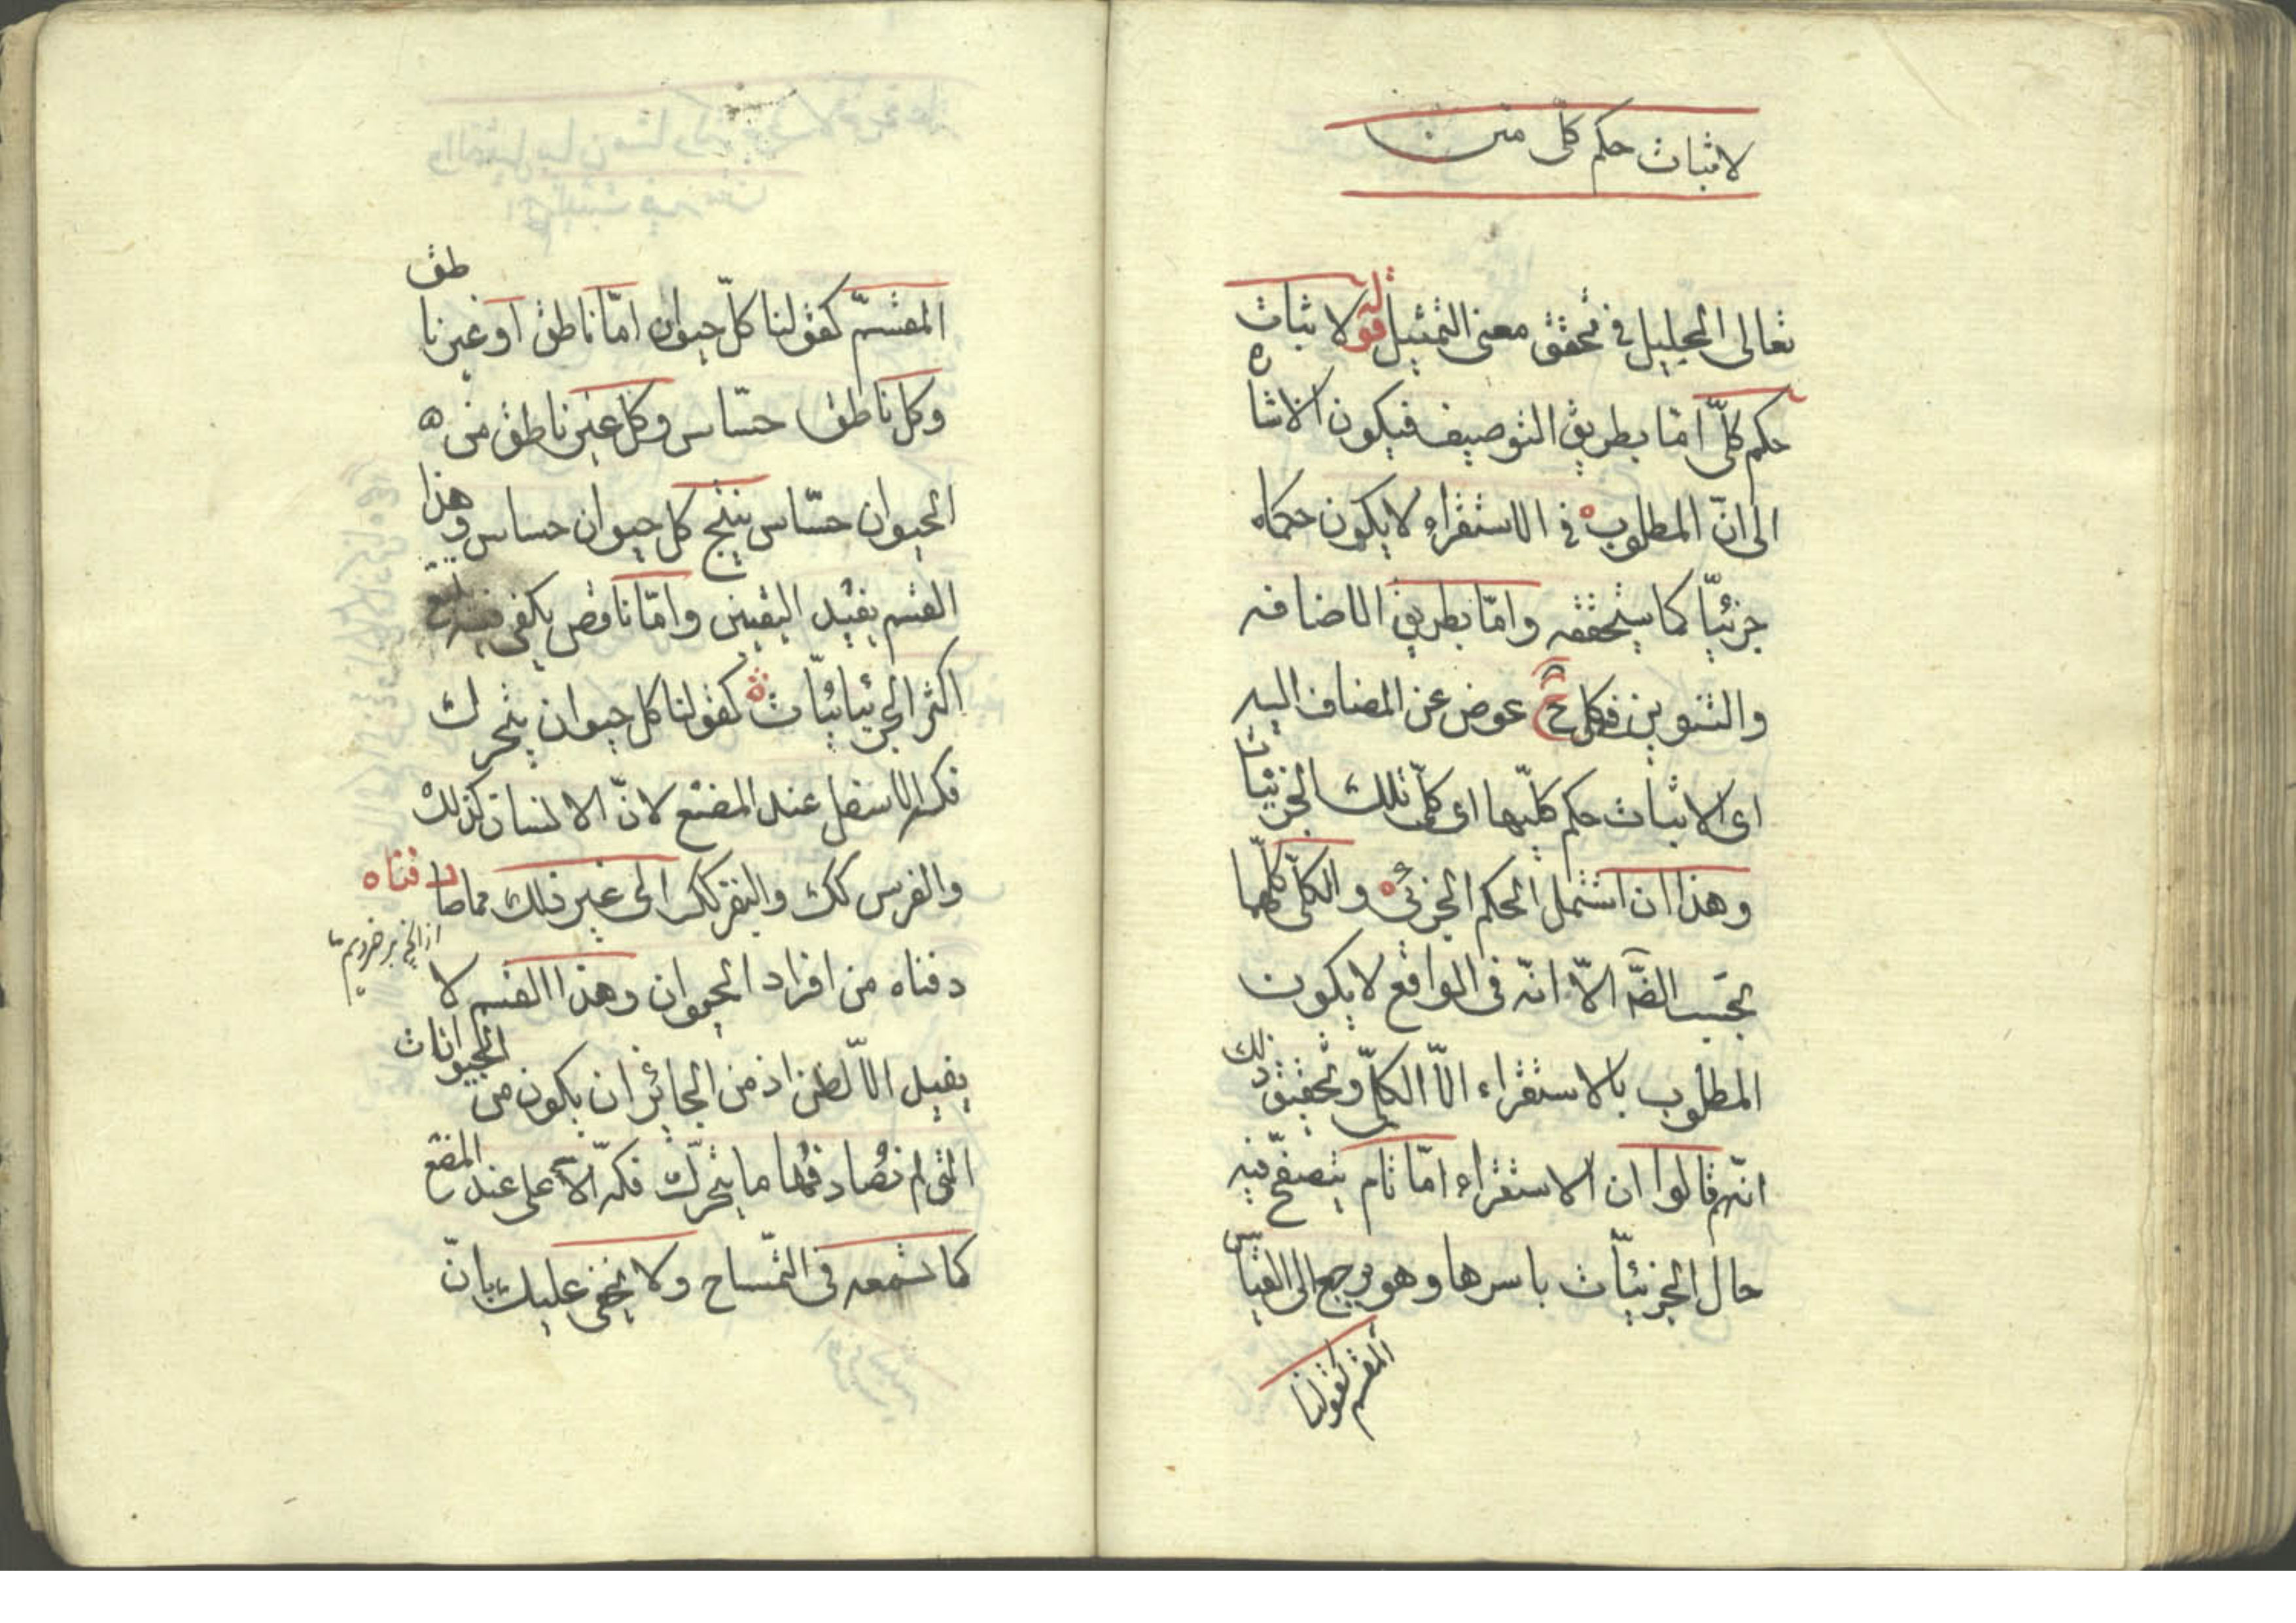 لاثبات حكم كلّى متن
تعالى الجليل فى تحقق معنى التمثيل قوله لاثبات
حكم كلّى امّا بطريق التوصيف فيكون الاشاره
الى انّ المطلوب فى الاستقراء لا يكون حكما
جزئيّا كما سيتحققه وامّا بطريق الاضافه
والتنوين فى كلى ح عوض عن المضاف اليه
اى لاثبات حكم كلّيها اى كلّى تلك الجزئيّات
وهذا ان اشتمل الحكم الجزئى والكلّى كلّهما
بحسب الظّ الّا انّه فى الواقع لا يكون
المطلوب بالاستقراء الّا الكلّى وتحقيق ذلك
انّهم قالوا ان الاستقراء امّا تام يتصفّح فيه
حال الجزئيّات باسرها وهو يرجع الى القياس
المقسم كقولنا
المقسّم كقولنا كلّ حيوان امّا ناطق او غير ناطق
وكل ناطق حسّاس وكل غير ناطق من
الحيوان حسّاس ينتج كل حيوان حساس وهذا
القسم يفيد اليقين وامّا ناقص يكفى فيه تتبع
اكثر الجزئيات كقولنا كل حيوان يتحرك
فكه الاسفل عند المضغ لانّ الانسان كذلك
والفرس كك والبقر كك الى غير ذلك مما صادفناه
دفناه من افراد الحيوان وهذا القسم لا
يفيد الّا الظن اذ من الجائز ان يكون من الحيوانات
التى لم نصادفها ما يتحرّك فكه الاعلى عند المضغ
كما نسمعه فى التمساح ولا يخفى عليك بانّ